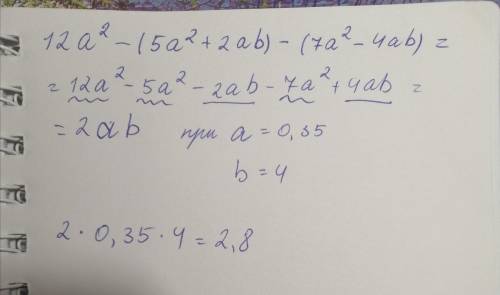 12a² - (5a² + 2ab) - (7a² - 4ab) =
= 12a² - 5a² - 2ab - 7a² + 4ab =
= 2ab при a = 0,35
b = 4
2 · 0,35 · 4 = 2,8